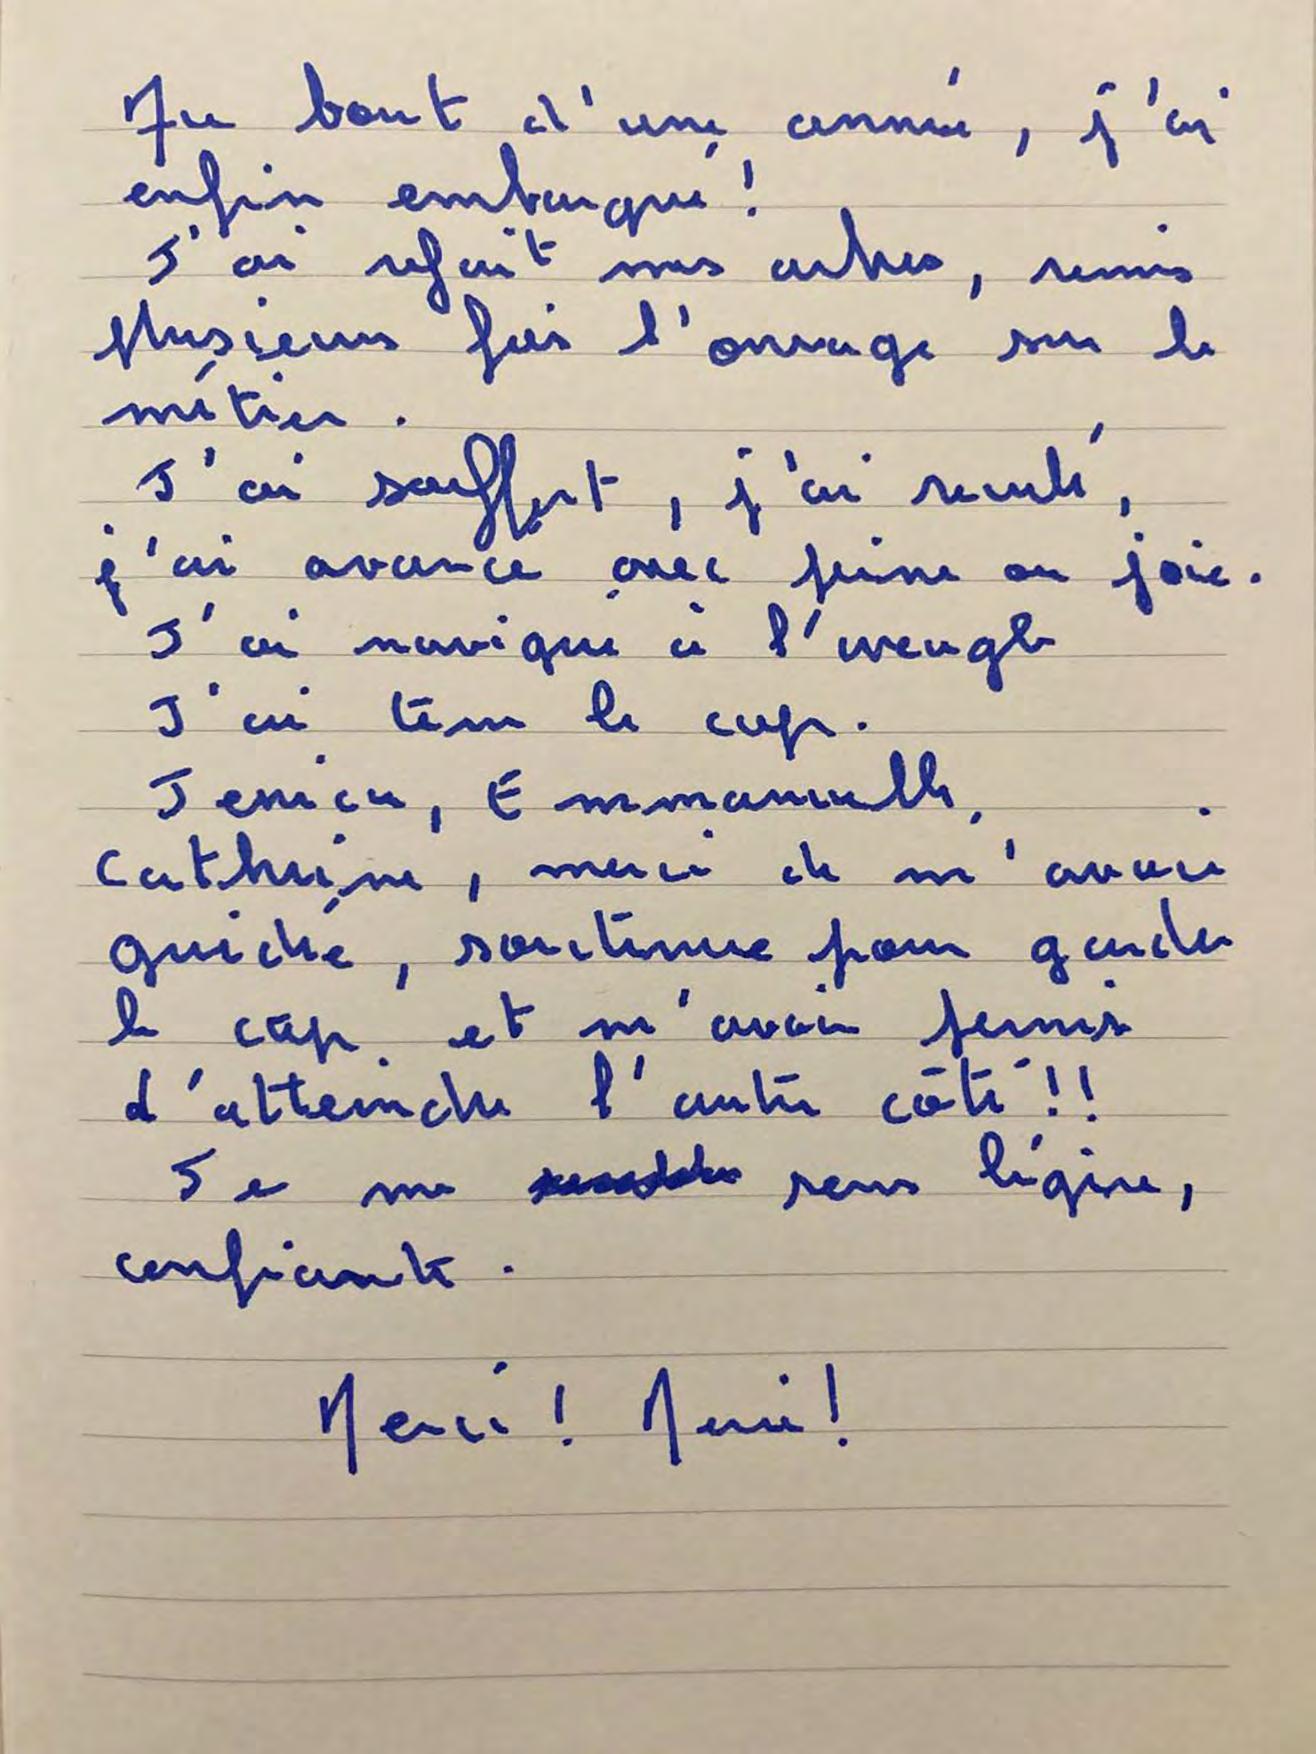 Au bout d'une année, j'ai
enfin embarqué !
J'ai refait mes arbres, remis
plusieurs fois l'ouvrage sur le
métier.
J'ai souffert, j'ai reculé,
j'ai avancé avec peine ou joie.
J'ai navigué à l'aveugle
J'ai tenu le cap.
Emmanuelle,
Catherine, merci de m'avoir
guidée, soutenue pour garder
le cap et m'avoir permis
d'atteindre l'autre côté !!
Je me sens légère,
confiante.
Merci ! Merci !